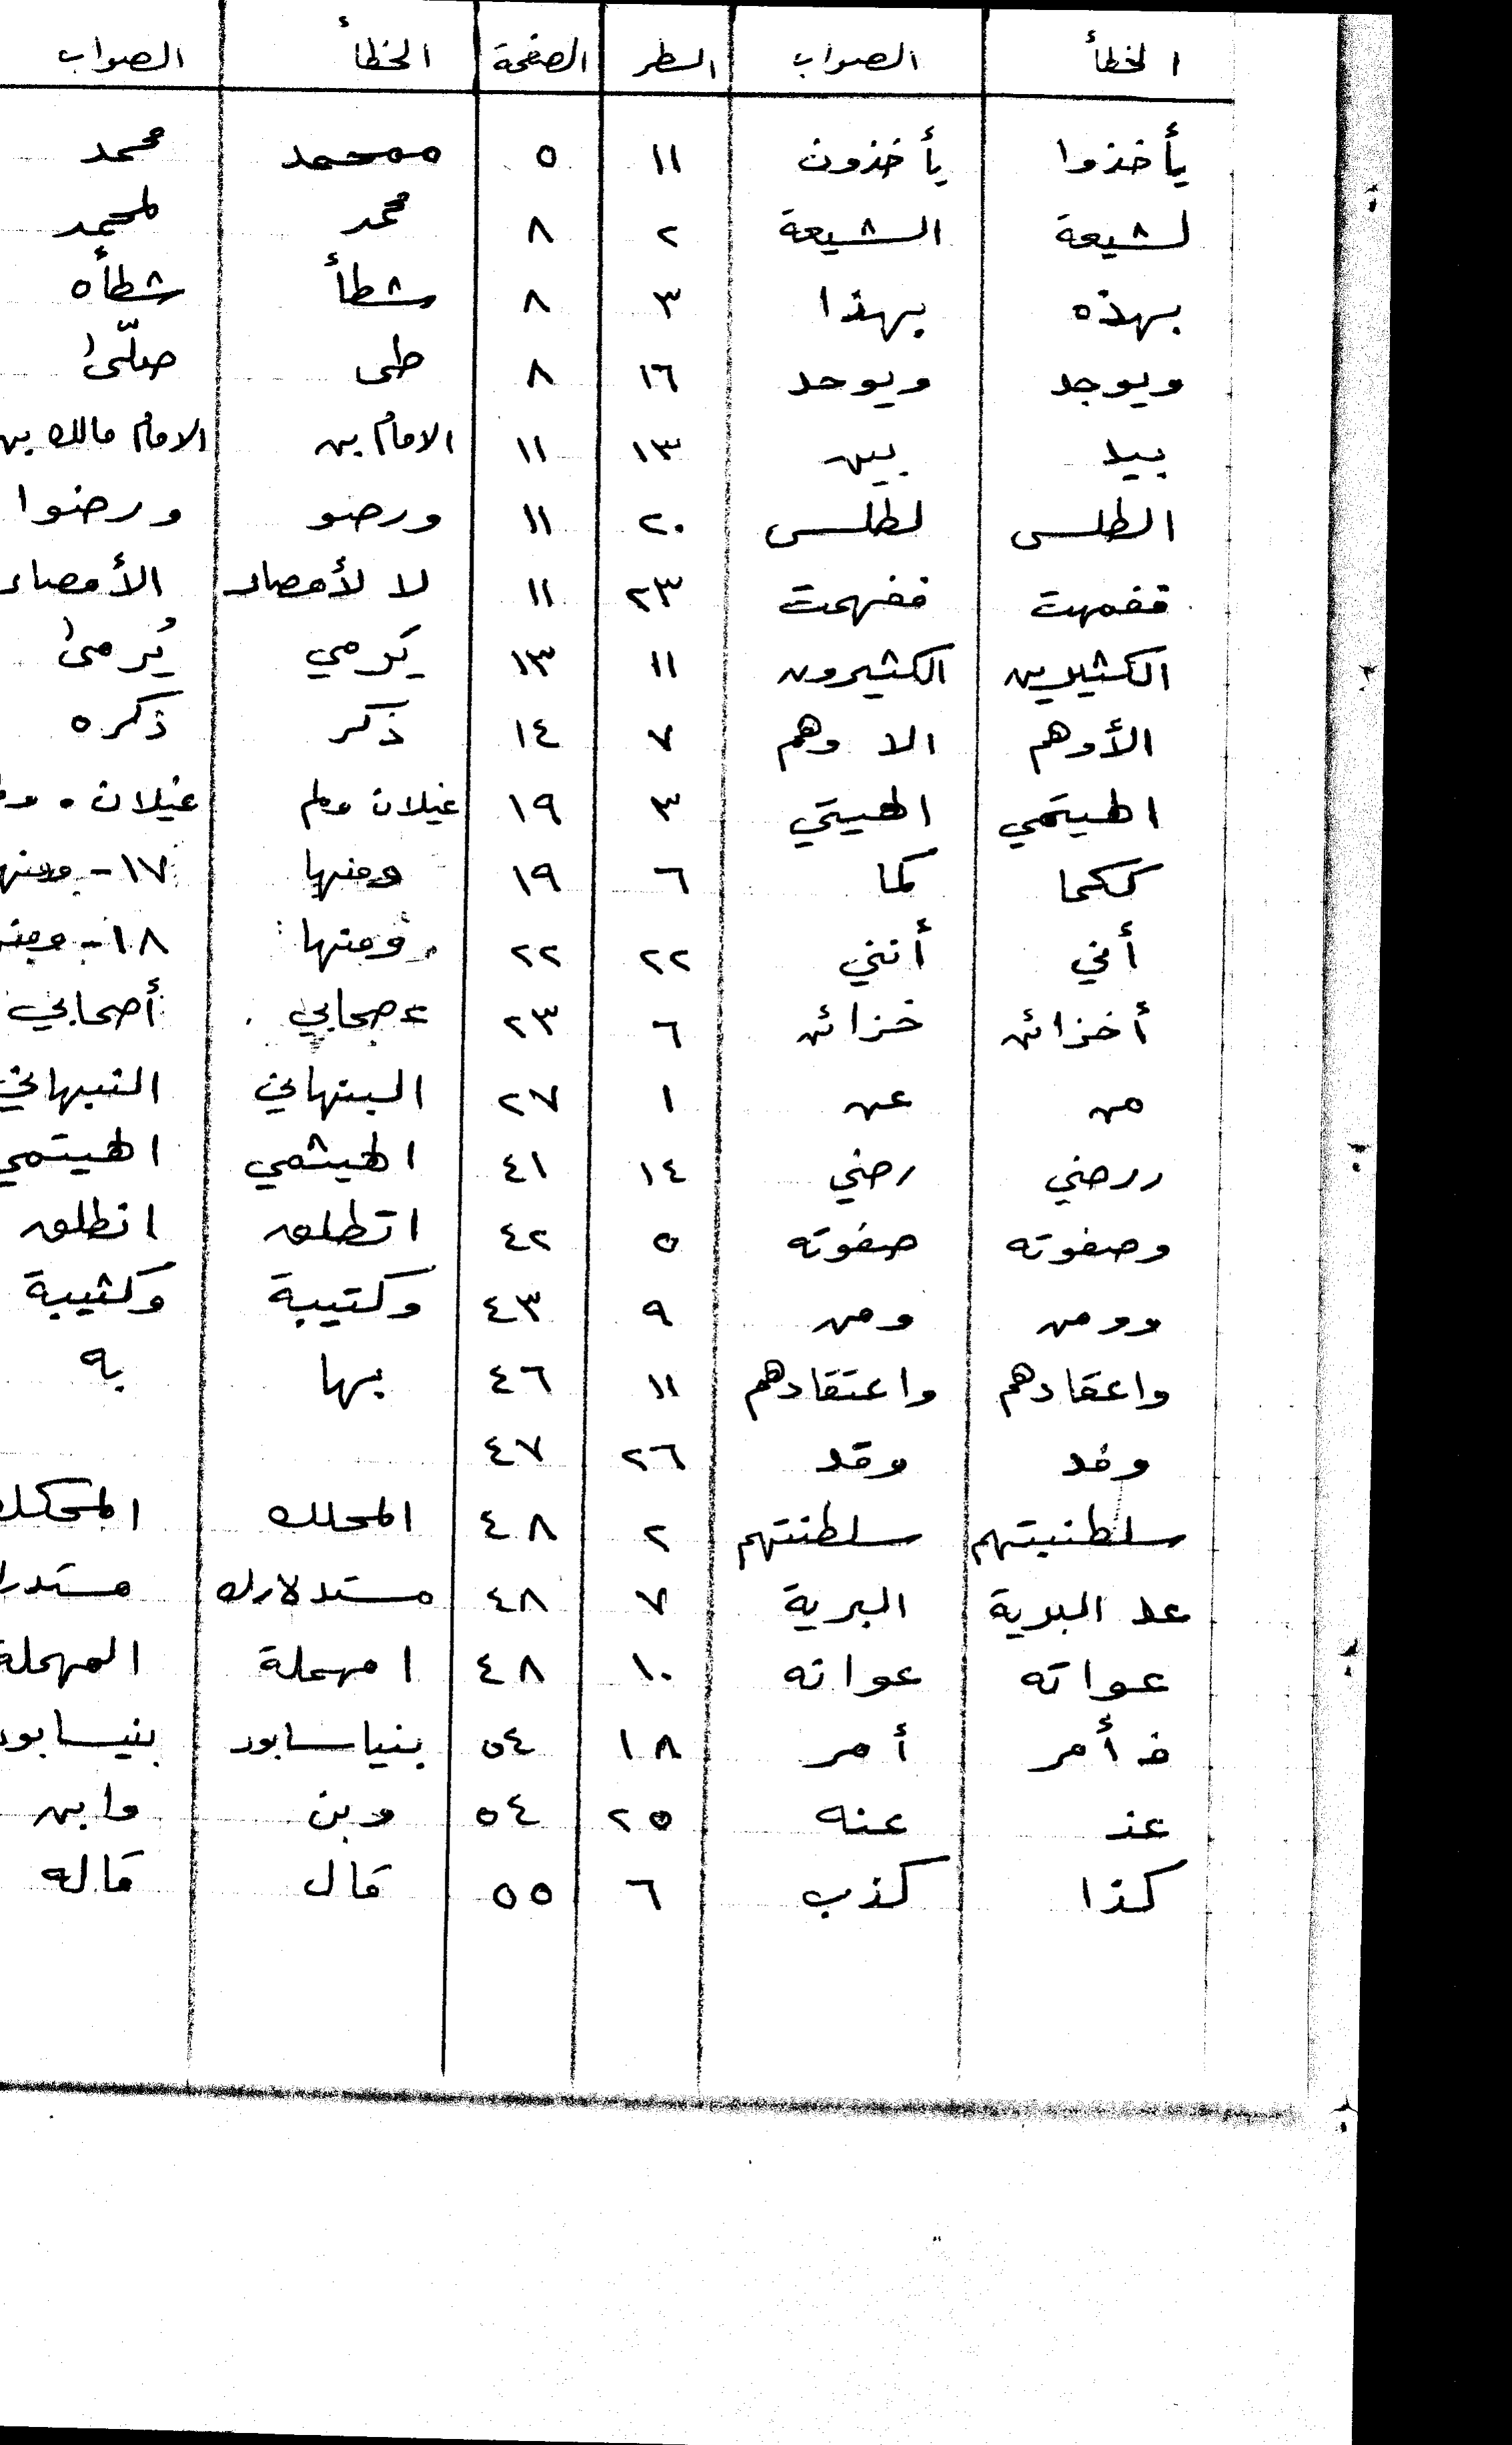 الخطأ الصواب السطر الصفحة الخطأ الصواب
يأخذوا يأخذون ١١ ٥ ممحمد محمد
لشيعة الشيعة ٢ ٨ محمد لمحمد
بهذه بهذا ٣ ٨ شطأ شطأه
ويوجد ويوحد ١٦ ٨ طى صلّى
بيد بين ١٣ ١١ الامام بن الامام مالك بن
الطلس لطلس ٢٠ ١١ ورضو ورضوا
قفمهت ففهمت ٢٣ ١١ لا لأمصار الأمصار
الكثيرين الكثيرون ١١ ١٣ يَرمي يُرمى
الأوهم الا وهم ٧ ١٤ ذكر ذكره
الهيتمي الهيتي ٣ ١٩ غيلان ولم غيلان .
ككما كما ٦ ١٩ ومنها ١٧-
أني أنني ٢٢ ٢٢ ومنها ١٨-
أخزائن خزائن ٦ ٢٣ ءصحابي أصحابي
من عن ١ ٢٧ البنهاني النبهاني
ررضي رضي ١٤ ٤١ الهيثمي الهيتمي
وصفوته صفوته ٥ ٤٢ اتطلق انطلق
وومن ومن ٩ ٤٣ وكتيبة وكثيبة
واعقادهم واعتقادهم ١١ ٤٦ بها به
وفد وقد ٢٦ ٤٧
سلطنيتهم سلطنتهم ٢ ٤٨ المحلك
عد البرية البرية ٧ ٤٨ مستدلارك
عواته عوانه ١٠ ٤٨ امهملة المهملة
فأمر أمر ١٨ ٥٤ بنياسابور بنيسابور
عذ عنه ٢٥ ٥٤ وبن وابن
كذا كذب ٦ ٥٥ قال قاله